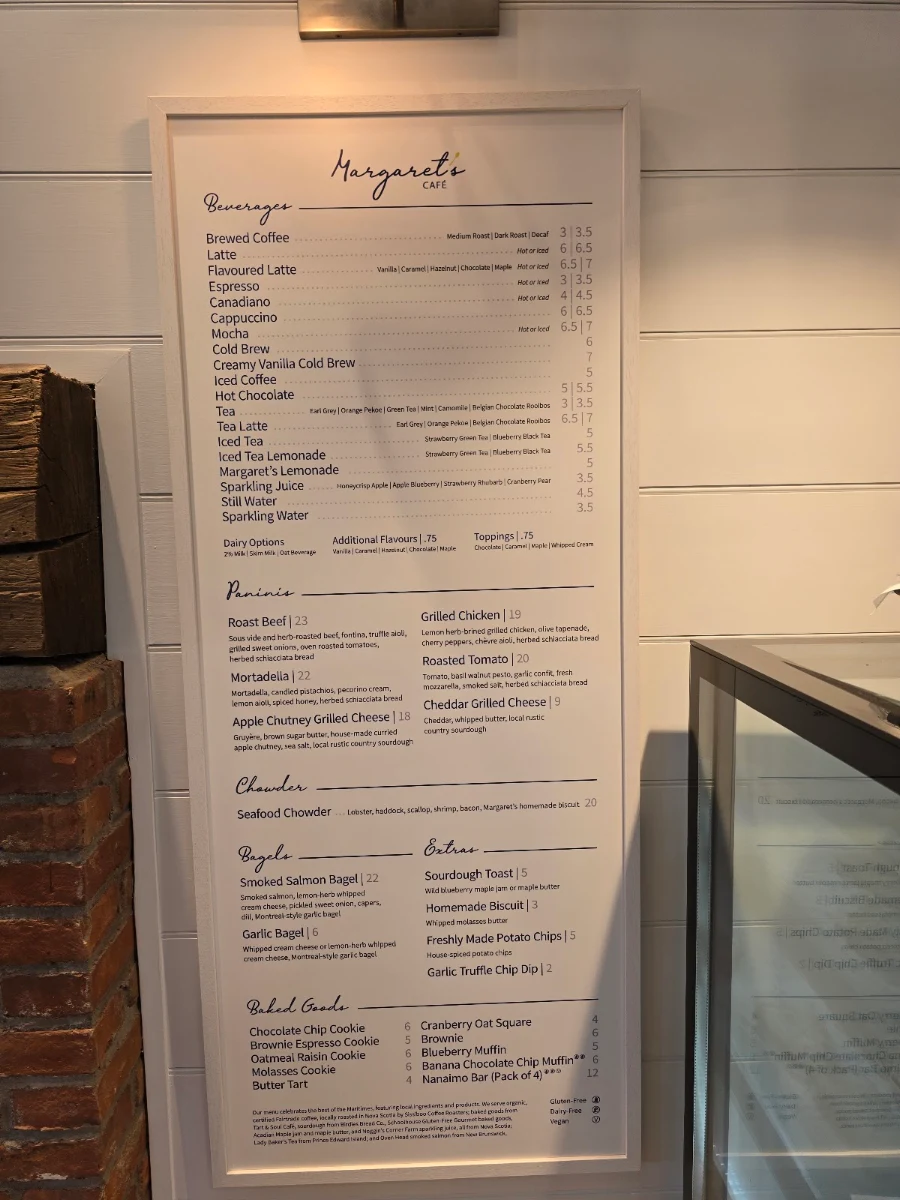 Margaret's
CAFÉ
Beverages
Brewed Coffee Medium Roast | Dark Roast | Decaf 3 | 3.5
Latte Hot or Iced 6 | 6.5
Flavoured Latte Vanilla | Caramel | Hazelnut | Chocolate | Maple Hot or Iced 6.5 | 7
Espresso Hot or Iced 3 | 3.5
Canadiano Hot or Iced 4 | 4.5
Cappuccino 6 | 6.5
Mocha Hot or Iced 6.5 | 7
Cold Brew 6
Creamy Vanilla Cold Brew 7
Iced Coffee 5
Hot Chocolate 5 | 5.5
Tea Earl Grey | Orange Pekoe | Green Tea | Mint | Camomile | Belgian Chocolate Rooibos 3 | 3.5
Tea Latte Earl Grey | Orange Pekoe | Belgian Chocolate Rooibos 6.5 | 7
Iced Tea Strawberry Green Tea | Blueberry Black Tea 5
Iced Tea Lemonade Strawberry Green Tea | Blueberry Black Tea 5.5
Margaret's Lemonade 5
Sparkling Juice Honeycrisp Apple | Apple Blueberry | Strawberry Rhubarb | Cranberry Pear 3.5
Still Water 4.5
Sparkling Water 3.5
Dairy Options
2% Milk | Skim Milk | Oat Beverage
Additional Flavours | .75
Vanilla | Caramel | Hazelnut | Chocolate | Maple
Toppings | .75
Chocolate | Caramel | Maple | Whipped Cream
Paninis
Roast Beef | 23
Sous vide and herb-roasted beef, fontina, truffle aioli,
grilled sweet onions, oven roasted tomatoes,
herbed schiacciata bread
Mortadella | 22
Mortadella, candied pistachios, pecorino cream,
lemon aioli, spiced honey, herbed schiacciata bread
Apple Chutney Grilled Cheese | 18
Gruyère, brown sugar butter, house-made curried
apple chutney, sea salt, local rustic country sourdough
Grilled Chicken | 19
Lemon herb-brined grilled chicken, olive tapenade,
cherry peppers, chèvre aioli, herbed schiacciata bread
Roasted Tomato | 20
Tomato, basil walnut pesto, garlic confit, fresh
mozzarella, smoked salt, herbed schiacciata bread
Cheddar Grilled Cheese | 9
Cheddar, whipped butter, local rustic
country sourdough
Chowder
Seafood Chowder Lobster, haddock, scallop, shrimp, bacon, Margaret's homemade biscuit 20
Bagels
Smoked Salmon Bagel | 22
Smoked salmon, lemon-herb whipped
cream cheese, pickled sweet onion, capers,
dill, Montreal-style garlic bagel
Garlic Bagel | 6
Whipped cream cheese or lemon-herb whipped
cream cheese, Montreal-style garlic bagel
Extras
Sourdough Toast | 5
Wild blueberry maple jam or maple butter
Homemade Biscuit | 3
Whipped molasses butter
Freshly Made Potato Chips | 5
House-spiced potato chips
Garlic Truffle Chip Dip | 2
Baked Goods
Chocolate Chip Cookie 6
Brownie Espresso Cookie 5
Oatmeal Raisin Cookie 6
Molasses Cookie 6
Butter Tart 4
Cranberry Oat Square 4
Brownie 6
Blueberry Muffin 5
Banana Chocolate Chip Muffin 6
Nanaimo Bar (Pack of 4) 12
Our menu celebrates the best of the Maritimes, featuring local ingredients and products. We serve organic,
certified Fairtrade coffee, locally roasted in Nova Scotia by Sissiboo Coffee Roasters; baked goods from
Tart & Soul Café, sourdough from Birdies Bread Co., Schoolhouse Gluten-Free Gourmet baked goods,
Acadian Maple jam and maple butter, and Noggin's Corner Farm sparkling juice, all from Nova Scotia;
Lady Baker's Tea from Prince Edward Island; and Oven Head smoked salmon from New Brunswick.
Gluten-Free
Dairy-Free
Vegan